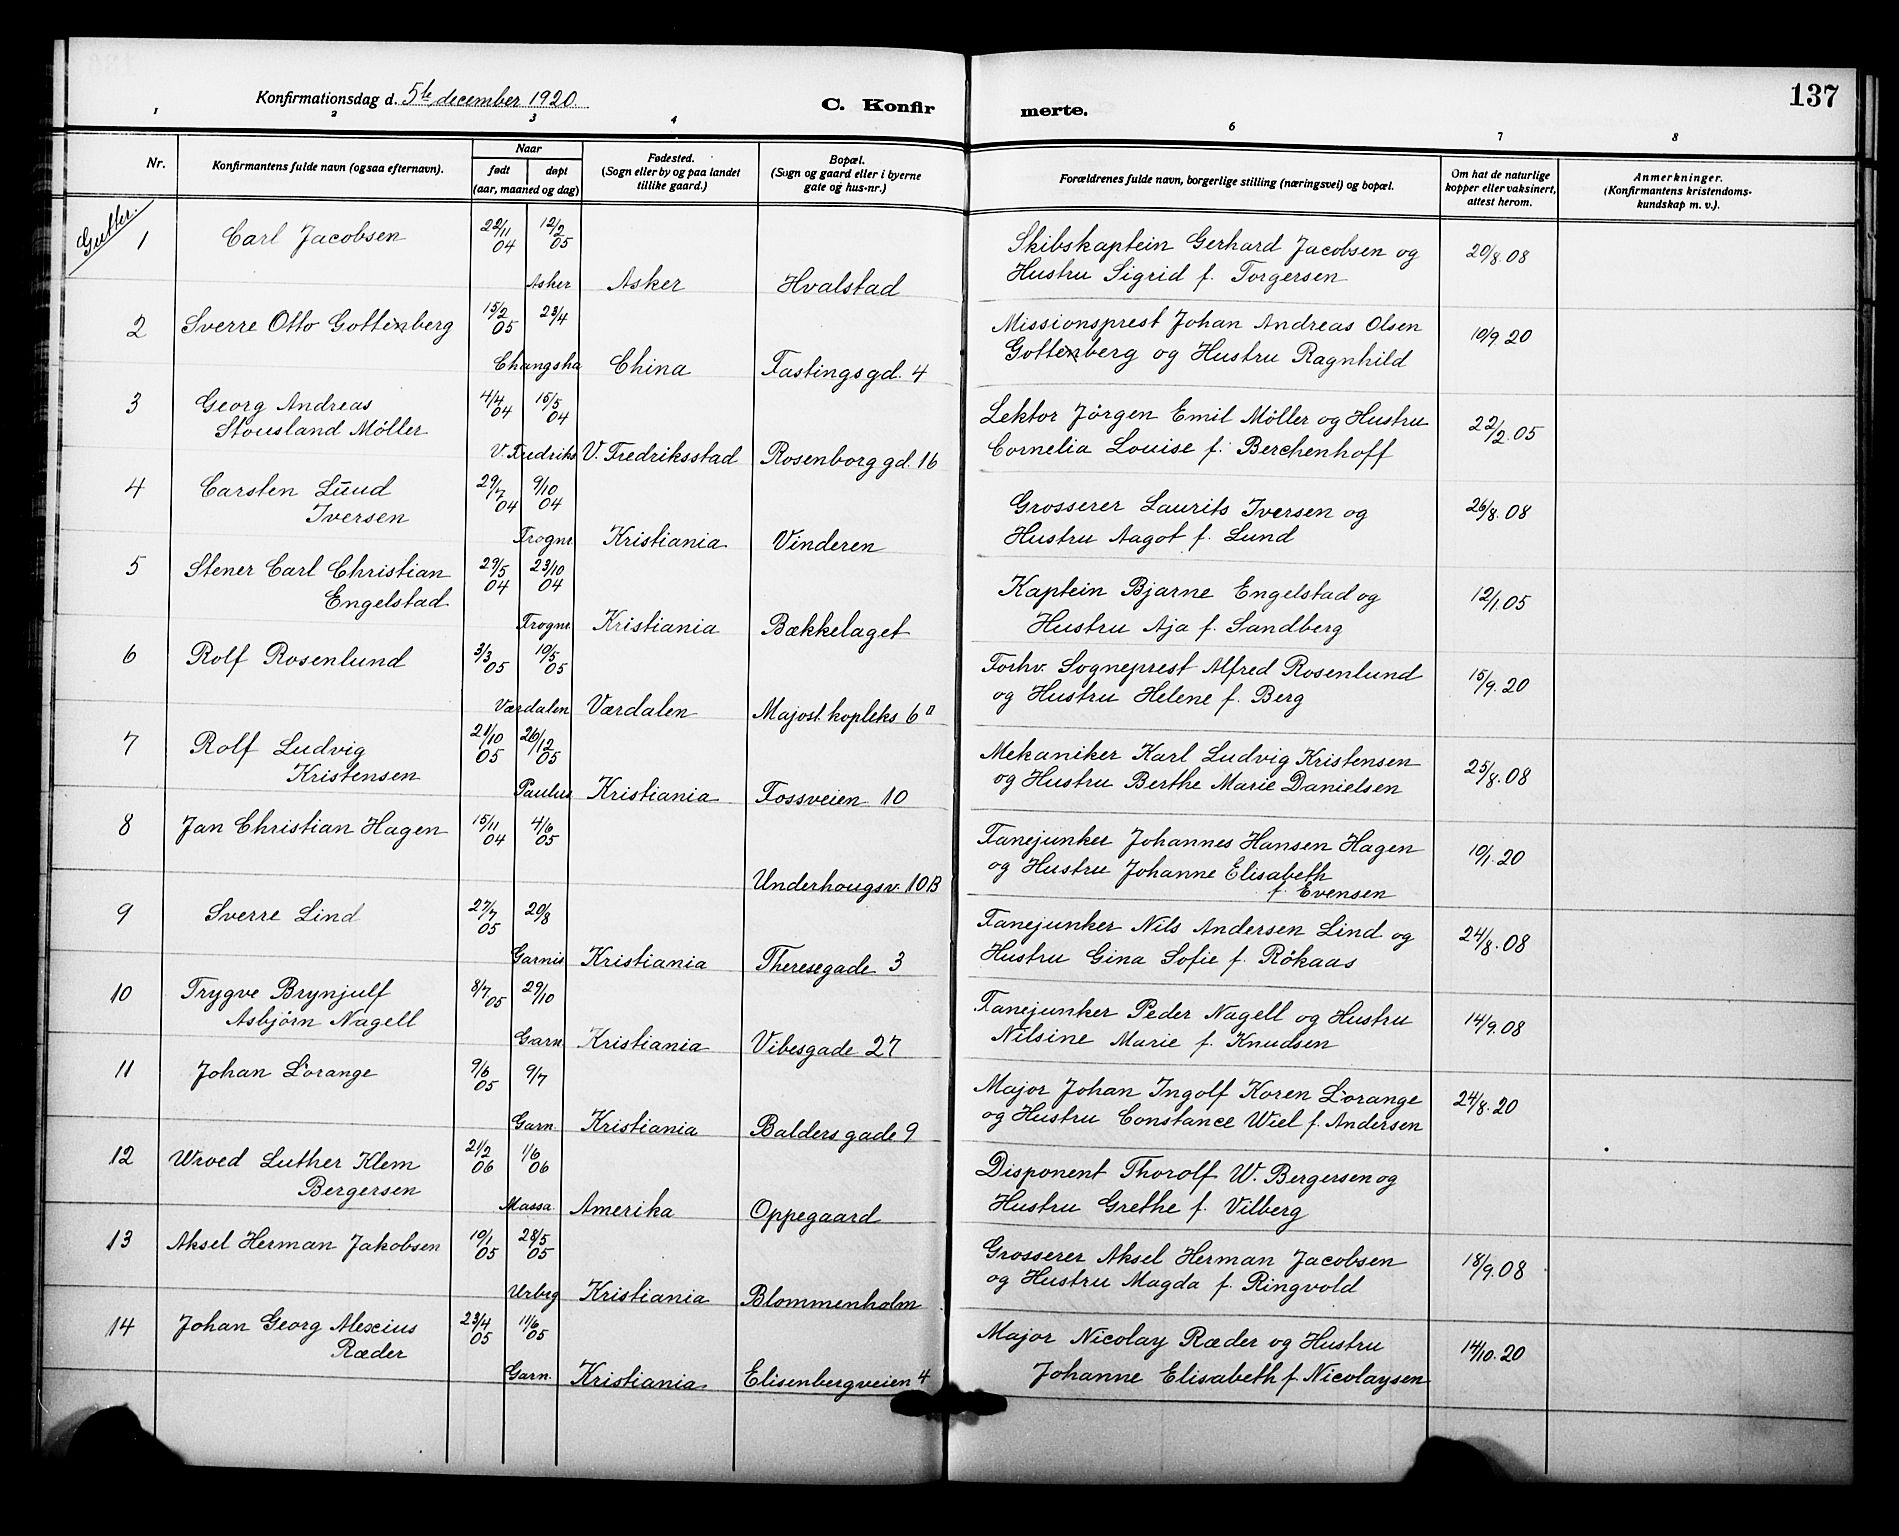 137
Konfirmationsdag d. 5te december 1920.
C. Konfir merte.
1 2 3 4 6 7 8
Nr.
Konfirmantens fulde navn (ogsaa efternavn).
Naar
født døpt
(aar, maaned og dag)
Fødested.
(Sogn eller by og paa landet
tillike gaard.)
Bopæl.
(Sogn og gaard eller i byerne
gate og hus-nr.)
Forældrenes fulde navn, borgerlige stilling (næringsvei) og bopæl.
Om hat de naturlige
kopper eller vaksinert,
attest herom.
Anmerkninger.
(Konfirmantens kristendoms-
kundskap m. v.).
Gutter.
1 Carl Jacobsen 22/11 04 12/2 05 Skibskaptein Gerhard Jacobsen og 20/8.08
Asker Asker Hvalstad Hustru Sigrid f. Torgersen
2 Sverre Otto Gottenberg 15/2 05 23/4 Missionsprest Johan Andreas Olsen 10/9 20
Changsha China Fastingsgd. 4 Gottenberg og Hustru Ragnhild
3 Georg Andreas 4/4 04 15/5 04 Lektor Jörgen Emil Möller og Hustru 22/2.05
Stousland Möller
V. Fredriks V. Fredriksstad Rosenborggd. 16 Cornelia Louise f. Berchenhoff
4 Carsten Lund 29/7 04 9/10 04 Grosserer Laurits Iversen og 26/8.08
Iversen
Frogne Kristiania Vinderen Hustru Aagot f. Lund
5 Stener Carl Christian 29/5 04 23/10 04 Kaptein Bjarne Engelstad og 12/1.05
Engelstad
Frogne Kristiania Bækkelaget Hustru Aja f. Sandberg
6 Rolf Rosenlund 3/3 05 10/5 05 Forhv. Sogneprest Alfred Rosenlund 15/9.20
Værdalen Værdalen Majost. kopleks 6 og Hustru Helene f. Berg
7 Rolf Ludvig 21/10 05 26/12 05 Mekaniker Karl Ludvig Kristensen 25/8.08
Kristensen
Paulus Kristiania Fossveien 10 og Hustru Berthe Marie Danielsen
8 Jan Christian Hagen 15/11 04 4/6 05 Fanejunker Johannes Hansen Hagen 10/1.20
Underhougsv. 10B og Hustru Johanne Elisabeth
f. Evensen
9 Sverre Lind 27/7 05 20/8 Fanejunker Nils Andersen Lind og 24/8.08
Garnis Kristiania Theresegade 3 Hustru Gina Sofie f. Rökaas
10 Trygve Brynjulf 8/7 05 29/10 Fanejunker Peder Nagell og Hustru 14/9.08
Asbjörn Nagell
Garn. Kristiania Vibesgade 27 Nilsine Marie f. Knudsen
11 Johan L'orange 9/6 05 9/7 Major Johan Ingolf Koren L'orange 24/8.20
Garn. Kristiania Baldersgade 9 og Hustru Constance Wiel f. Andersen
12 Wroed Luther Klem 21/2 06 1/6 06 Disponent Thorolf W. Bergersen og
Bergersen
Massa. Amerika Oppegaard Hustru Grethe f. Vilberg
13 Aksel Herman Jakobsen 10/1 05 28/5 05 Grosserer Aksel Herman Jacobsen 18/9.08
Urbeg Kristiania Blommenholm og Hustru Magda f. Ringvold
14 Johan Georg Alexius 23/4 05 11/6 05 Major Nicolay Ræder og Hustru 14/10.20
Ræder
Garn. Kristiania Elisenbergveien 4 Johanne Elisabeth f. Nicolaysen